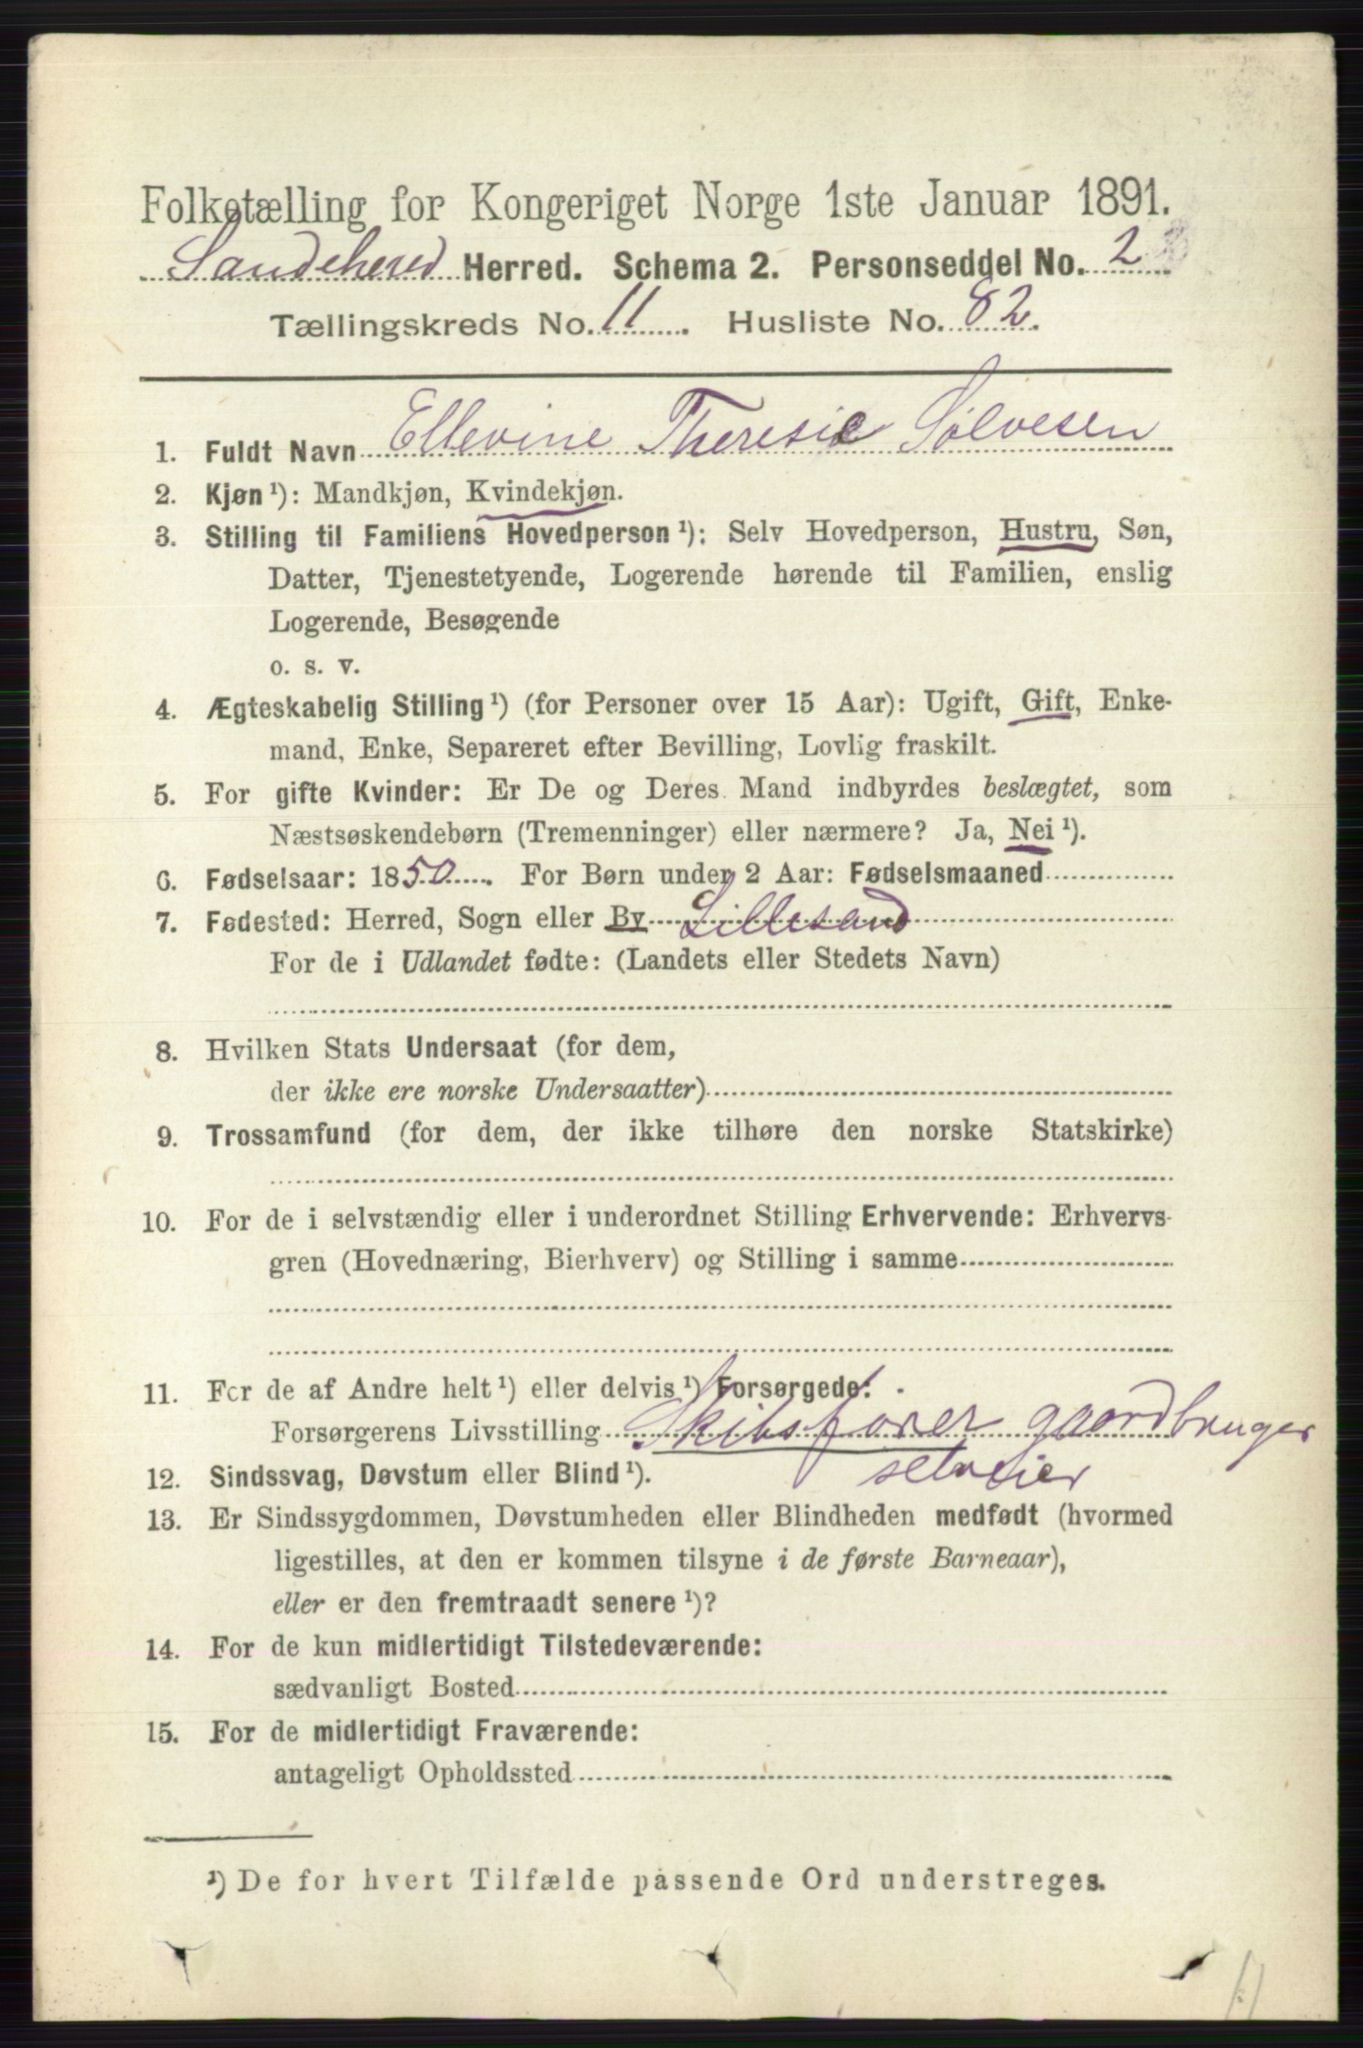 Folketælling for Kongeriget Norge 1ste Januar 1891.
Sandeherred Herred. Schema 2. Personseddel No. 2
Tællingskreds No. 11. Husliste No. 82.
1. Fuldt Navn Ellevine Theresie Sølvesen
2. Kjøn ¹): Mandkjøn, Kvindekjøn.
3. Stilling til Familiens Hovedperson ¹): Selv Hovedperson, Hustru, Søn,
Datter, Tjenestetyende, Logerende hørende til Familien, enslig
Logerende, Besøgende
o. s. v.
4. Ægteskabelig Stilling ¹) (for Personer over 15 Aar): Ugift, Gift, Enke-
mand, Enke, Separeret efter Bevilling, Lovlig fraskilt.
5. For gifte Kvinder: Er De og Deres Mand indbyrdes beslægtet, som
Næstsøskendebørn (Tremenninger) eller nærmere? Ja, Nei ¹).
6. Fødselsaar: 1850. For Børn under 2 Aar: Fødselsmaaned
7. Fødested: Herred, Sogn eller By Lillesand
For de i Udlandet fødte: (Landets eller Stedets Navn)
8. Hvilken Stats Undersaat (for dem,
der ikke ere norske Undersaatter)
9. Trossamfund (for dem, der ikke tilhøre den norske Statskirke)
10. For de i selvstændig eller i underordnet Stilling Erhvervende: Erhvervs-
gren (Hovednæring, Bierhverv) og Stilling i samme
11. For de af Andre helt ¹) eller delvis ¹) Forsørgede:
Forsørgerens Livsstilling Skibsfører gaardbruger
selveier
12. Sindssvag, Døvstum eller Blind ¹).
13. Er Sindssygdommen, Døvstumheden eller Blindheden medfødt (hvormed
ligestilles, at den er kommen tilsyne i de første Barneaar),
eller er den fremtraadt senere ¹)?
14. For de kun midlertidigt Tilstedeværende:
sædvanligt Bosted
15. For de midlertidigt Fraværende:
antageligt Opholdssted
¹) De for hvert Tilfælde passende Ord understreges.